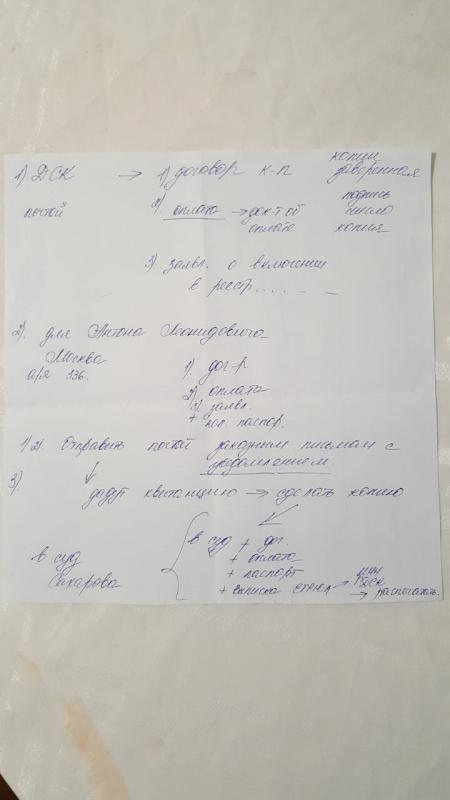 копии
1) ДСК → 1) договор к-п заверенная
подпись
почтой 2) оплата → док-т об число
оплате копия
3) заявл. о включении
в реестр......
2). для Антона Леонидовича
Москва
а/я 936. 1). дог-р
2) оплата
3). заявл.
+ паспор.
1) 2). Отправить почтой заказным письмом с
уведомлением.
3) ↓
дадут квитанцию → сделать копию
в суд + дог.
+ оплата
в суд + паспорт ИНН
Сахарова + выписка ЕГРЮЛ → ДСК
→ распечатать.